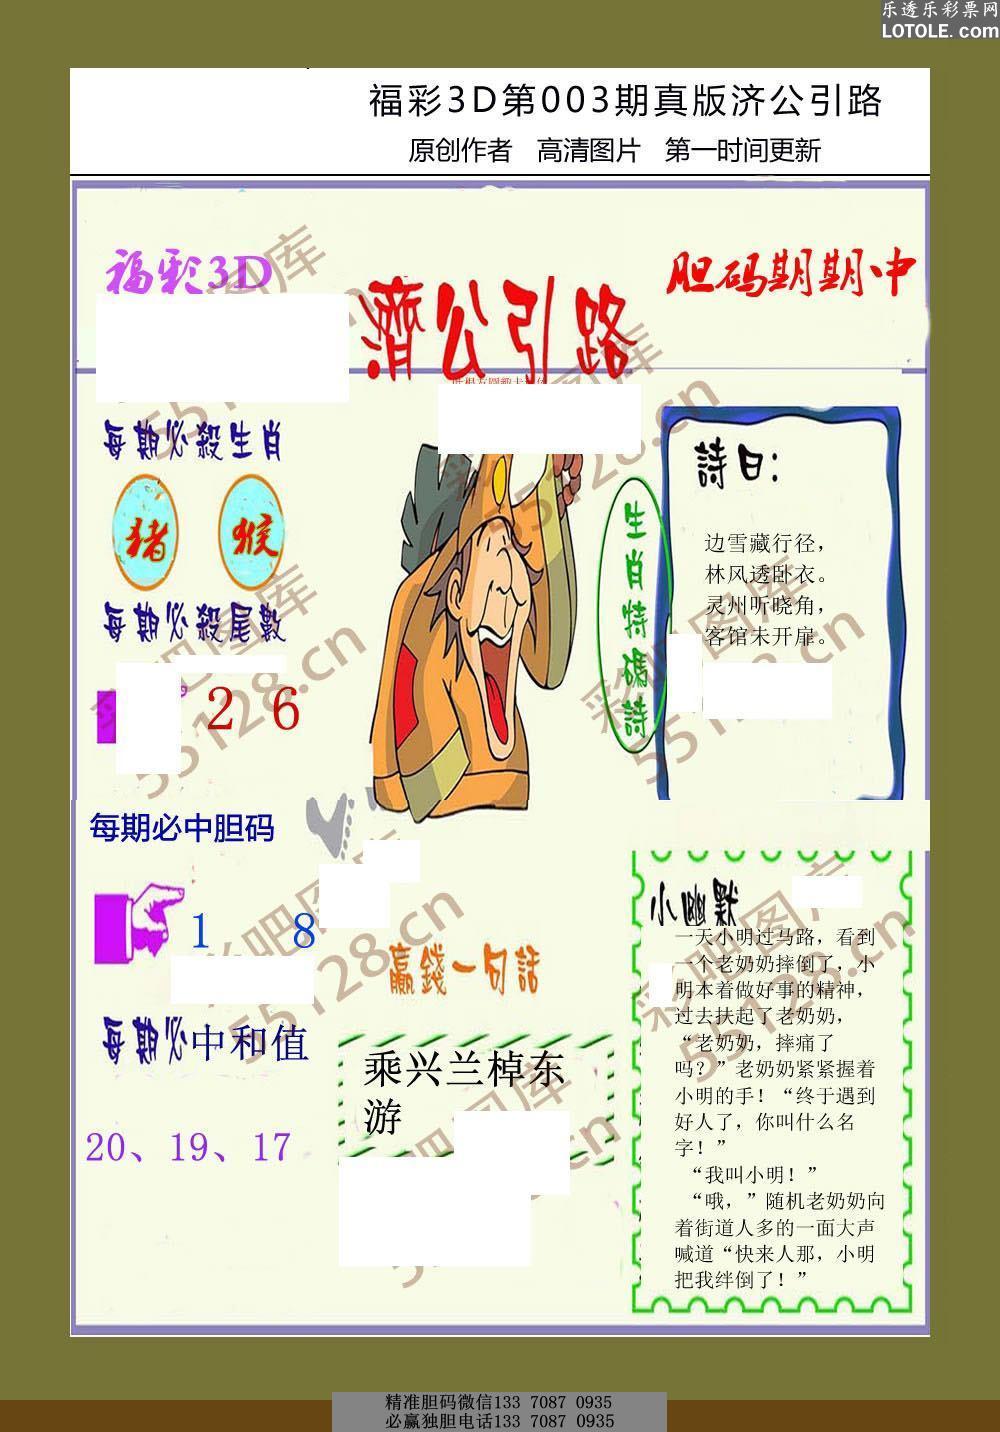 乐透乐彩票网
LOTOLE.com
福彩3D第003期真版济公引路
原创作者 高清图片 第一时间更新
福彩3D
濟公引路
胆码期期中
每期必殺生肖
猪 猴
每期必殺尾數
2 6
生肖特碼詩
詩曰：
边雪藏行径，
林风透卧衣。
灵州听晓角，
客馆未开扉。
每期必中胆码
1 8
每期必中和值
20、19、17
贏錢一句話
乘兴兰棹东
游
小幽默
一天小明过马路，看到
一个老奶奶摔倒了，小
明本着做好事的精神，
过去扶起了老奶奶，
“老奶奶，摔痛了
吗？”老奶奶紧紧握着
小明的手！“终于遇到
好人了，你叫什么名
字！”
“我叫小明！”
“哦，”随机老奶奶向
着街道人多的一面大声
喊道“快来人那，小明
把我绊倒了！”
彩吧图库
55128.cn
精准胆码微信133 7087 0935
必赢独胆电话133 7087 0935